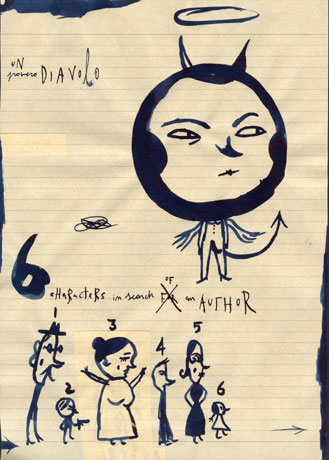 UN
povero DIAVOLO
6 CHARACTERS in search OF an AUTHOR
1
2
3
4
5
6